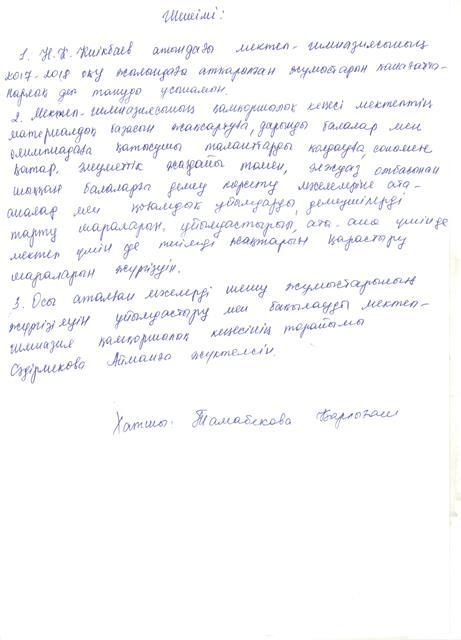 Шешімі:
1. Н.К. атындағы мектеп-гимназиясының
2017-2018 оқу жылындағы атқарылған жұмыстарын қанағатта-
нарлық деп тануды ұсынамын.
2. Мектеп-гимназиясының қамқоршылық кеңесі мектептің
материалдық базасын жақсартуға, дарынды балалар мен
олимпиадаға қатысушы талантты қолдауға, сонымен
қатар, әлеуметтік жағдайы төмен, әлжуаз отбасынан
шыққан балаларға демеу көрсету мәселеріне ата-
аналар мен қоғамдық ұйымдарды, демеушілерді
тарту шараларын ұйымдастырып, ата-ана үшін де
мектеп үшін де тиімді жақтарын қарастыру
шараларын жүргізуін.
3. Осы аталған мәселерді шешу жұмыстарының
жүргізілуін ұйымдастыру мен бақылауды мектеп-
гимназия қамқоршылық кеңесінің төрайымы
Айманға жүктелсін.
Хатшы: Тамабекова Қарлығаш